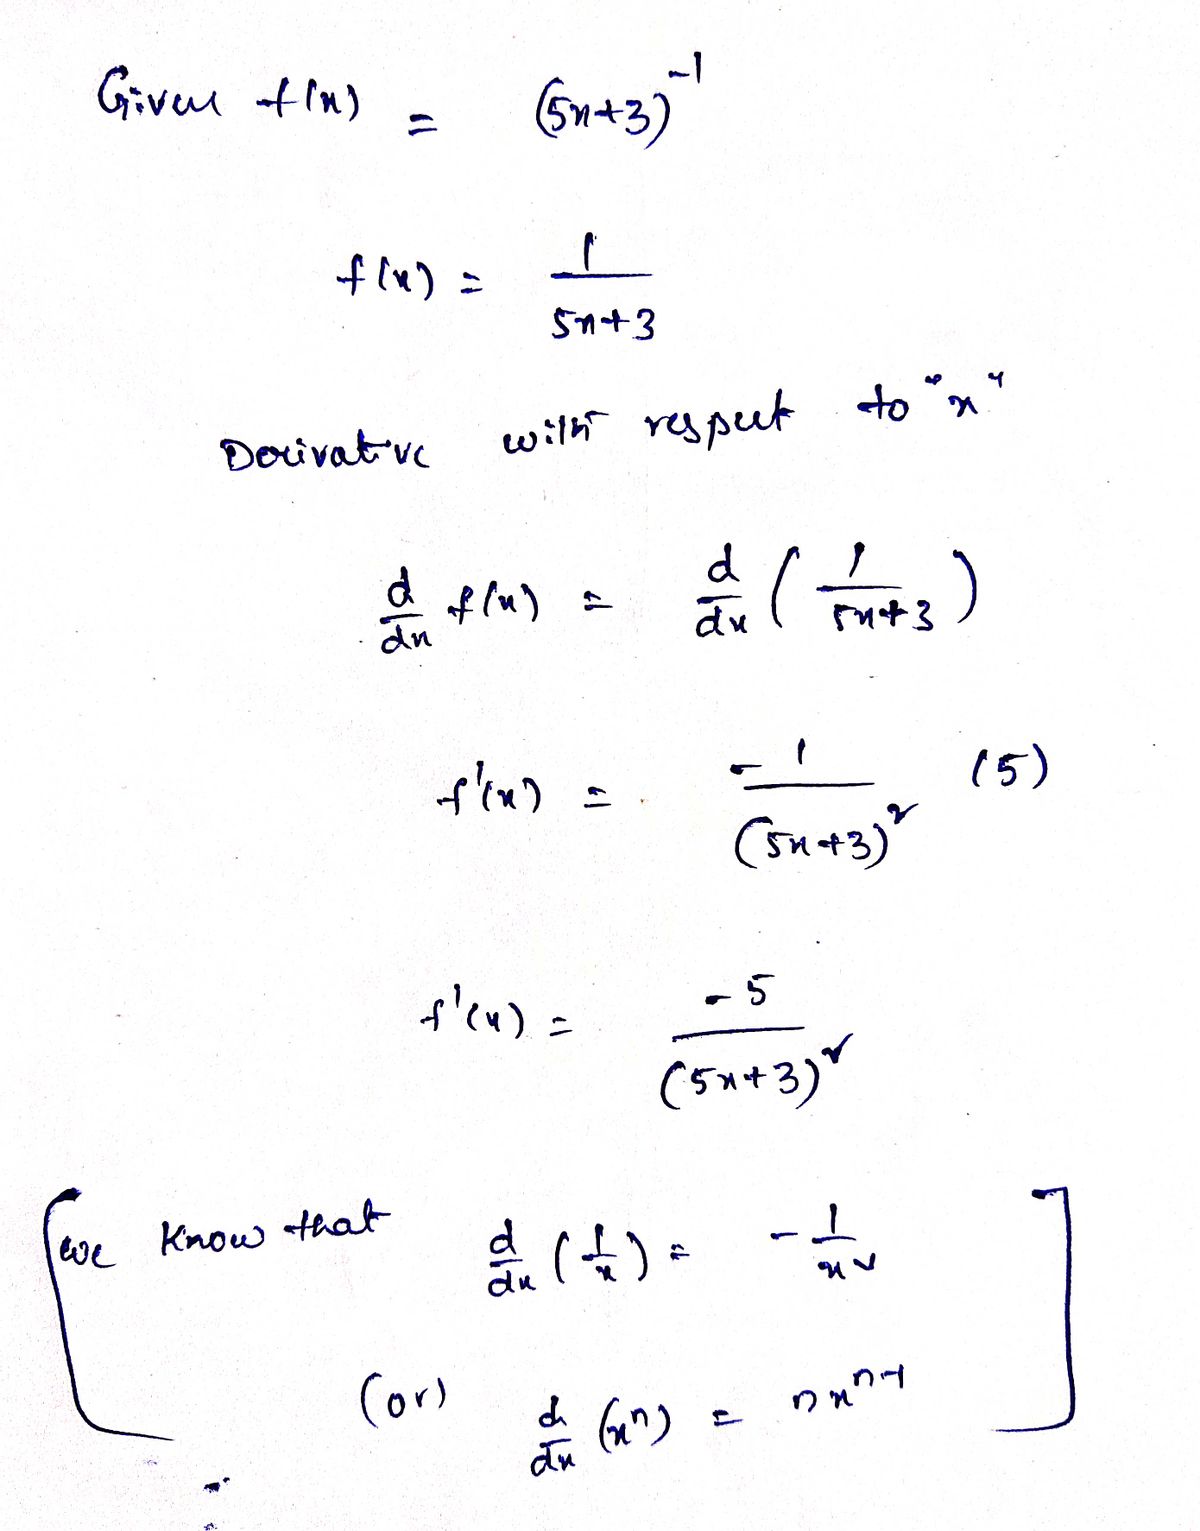 Given f(x) = (5x+3)^-1
f(x) = 1/(5x+3)
Derivative with respect to "x"
d/dx f(x) = d/dx (1/(5x+3))
f'(x) = -1/(5x+3)^2 (5)
f'(x) = -5/(5x+3)^2
[we know that d/dx (1/x) = -1/x^2
(or) d/dx (x^n) = n x^(n-1)]